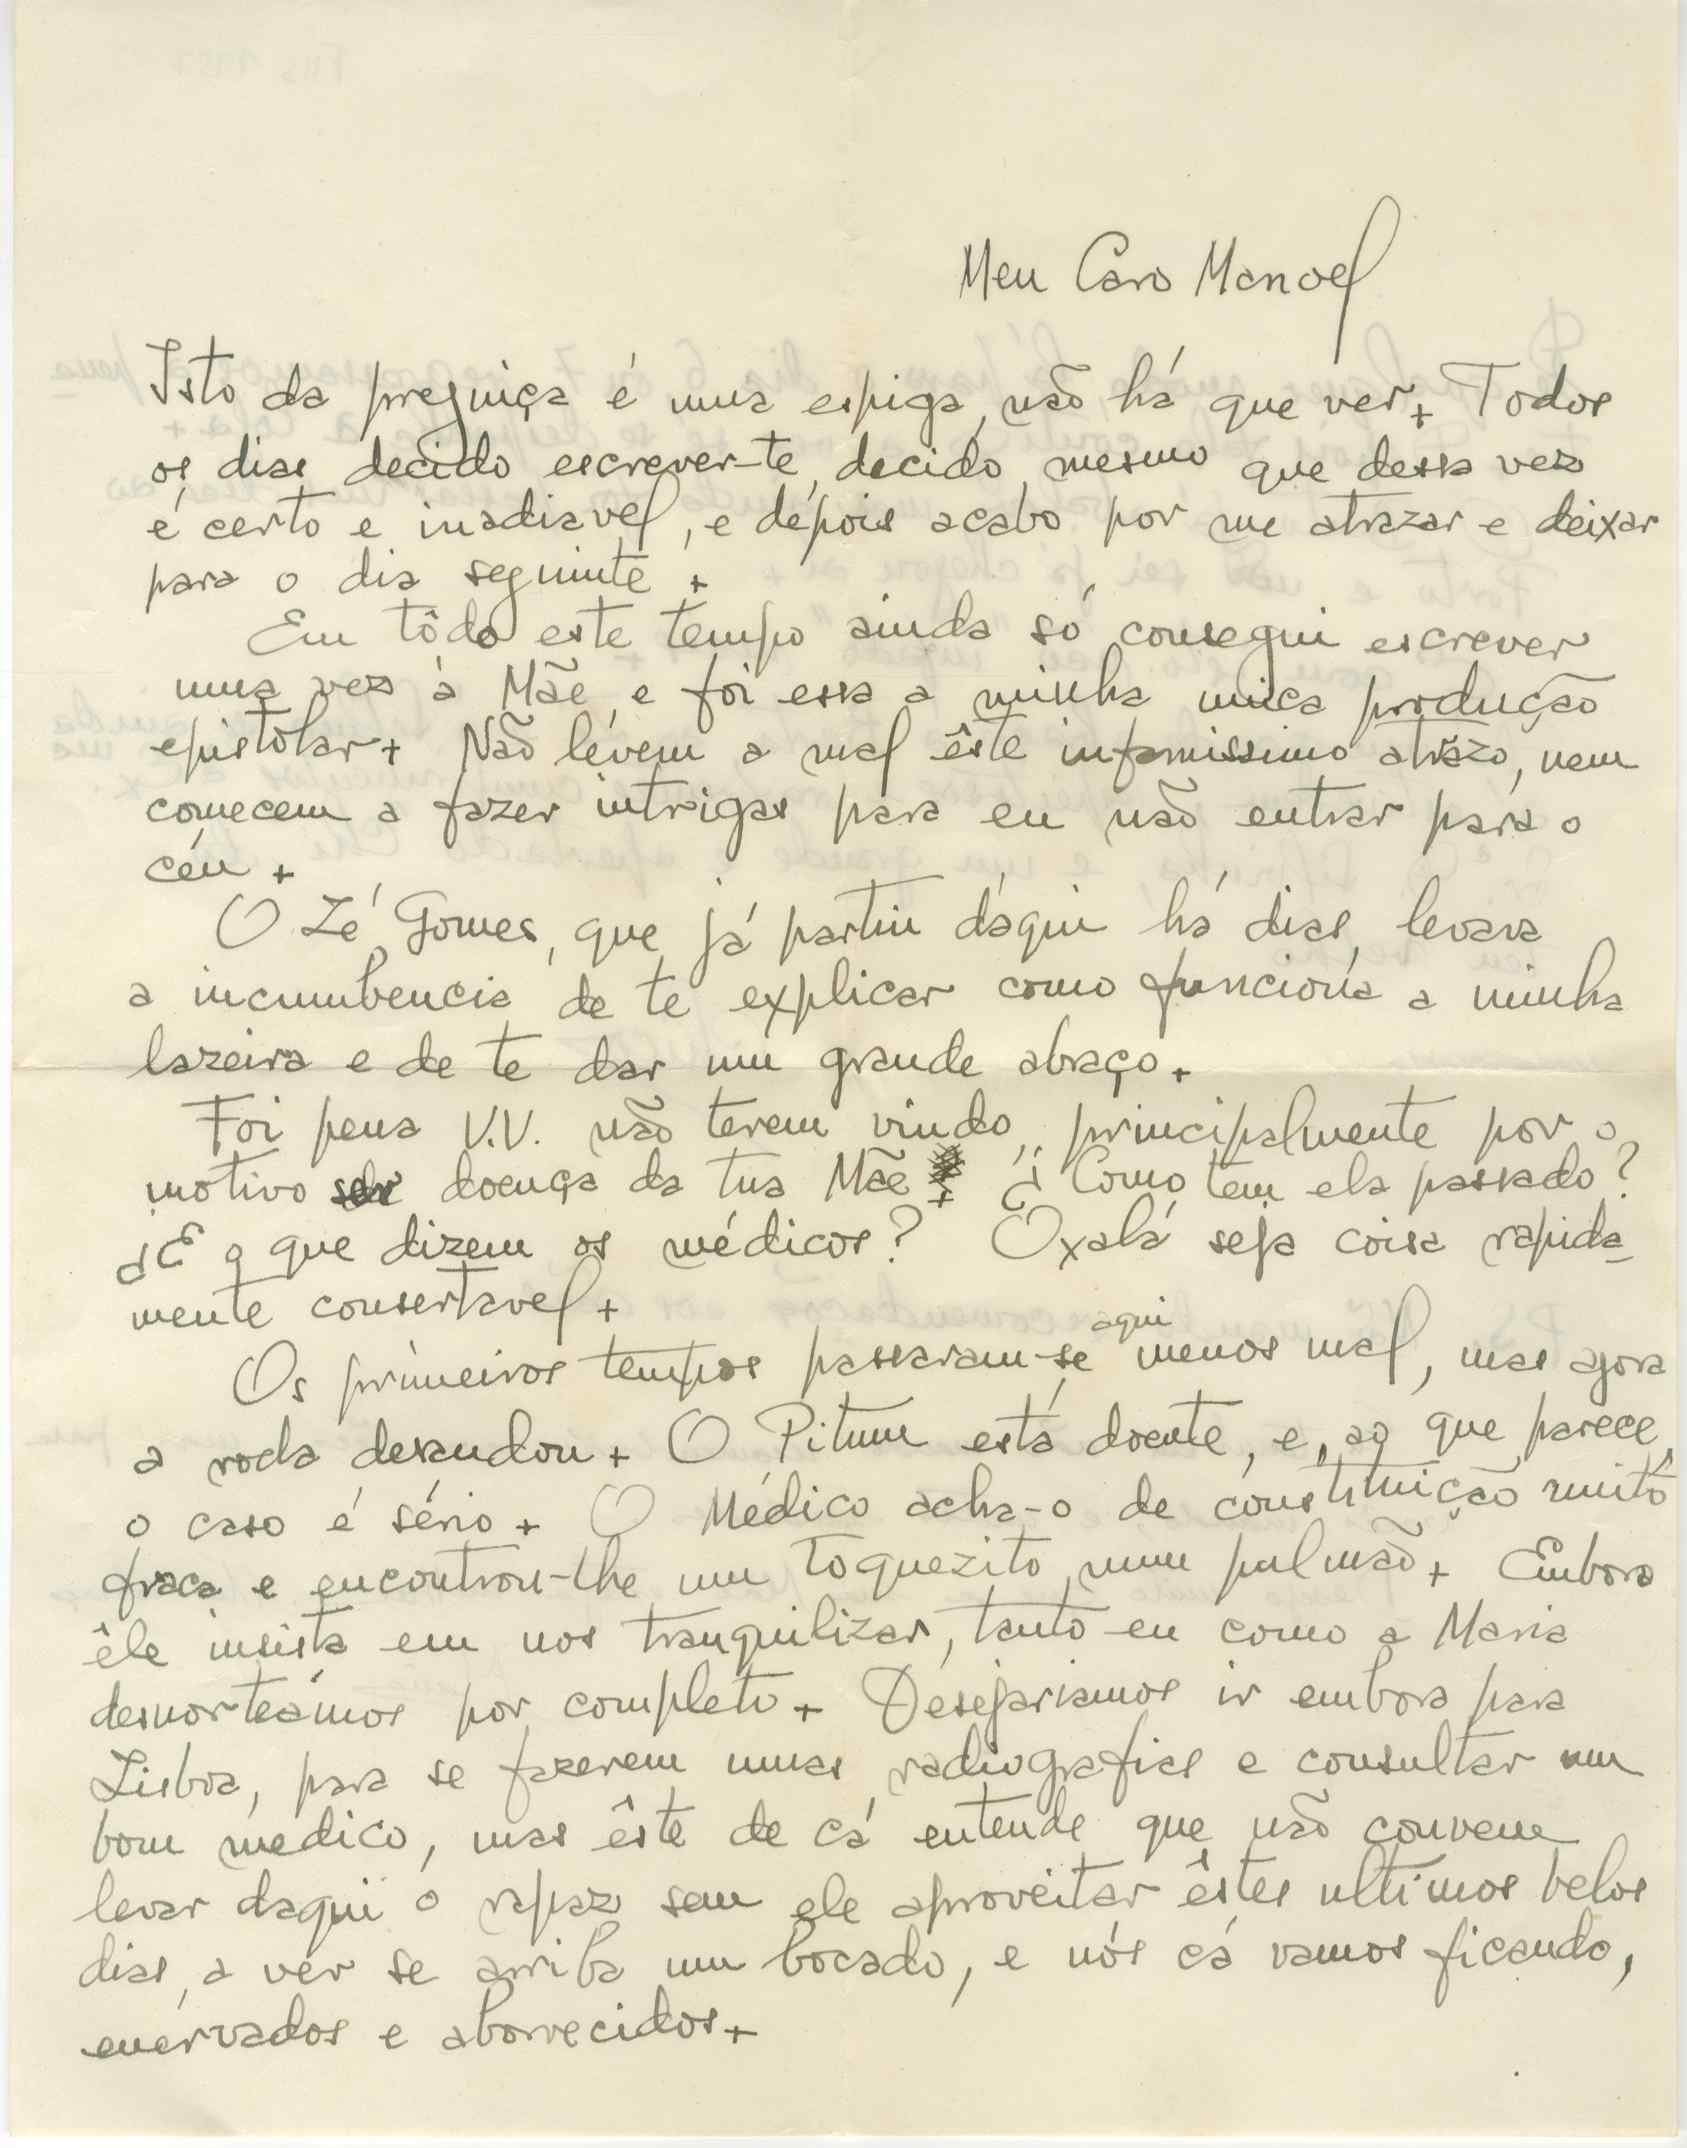 Meu Caro Manoel
Isto da preguiça é uma espiga, não há que ver+ Todos
os dias decido escrever-te, decido mesmo que dessa vez
é certo e inadiavel, e depois acabo por me atrazar e deixar
para o dia seguinte +
Em tôdo este tempo ainda só consegui escrever
uma vez à Mãe, e foi essa a minha unica produção
epistolar+ Não levem a mal êste infamissimo atrazo, nem
comecem a fazer intrigas para eu não entrar para o
céu +
O Zé Gomes, que já partiu daqui há dias, levava
a incumbencia de te explicar como funciona a minha
lazeira e de te dar um grande abraço+
Foi pena V.V. não terem vindo, principalmente por o
motivo ser doença da tua Mãe + ¿Como tem ela passado?
¿E o que dizem os médicos? Oxalá seja coisa rapida-
mente consertavel+
Os primeiros tempos passaram-se aqui menos mal, mas agora
a roda desandou+ O Pitum está doente, e, ao que parece,
o caso é sério+ O Médico acha-o de constituição muito
fraca e encontrou-lhe um toquezito num pulmão+ Embora
êle insista em nos tranquilizar, tanto eu como a Maria
desnorteámos por completo+ Desejariamos ir embora para
Lisboa, para se fazerem umas radiografias e consultar um
bom medico, mas êste de cá entende que não convem
levar daqui o rapaz sem ele aproveitar êstes ultimos belos
dias, a ver se arriba um bocado, e nós cá vamos ficando,
enervados e aborrecidos+